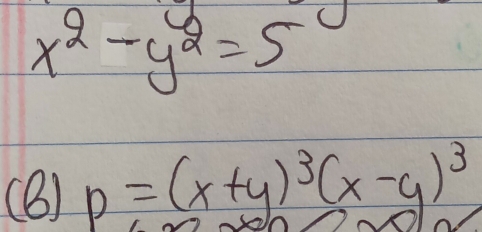 x² - y² = 5
(b) p = (x+y)³(x-y)³